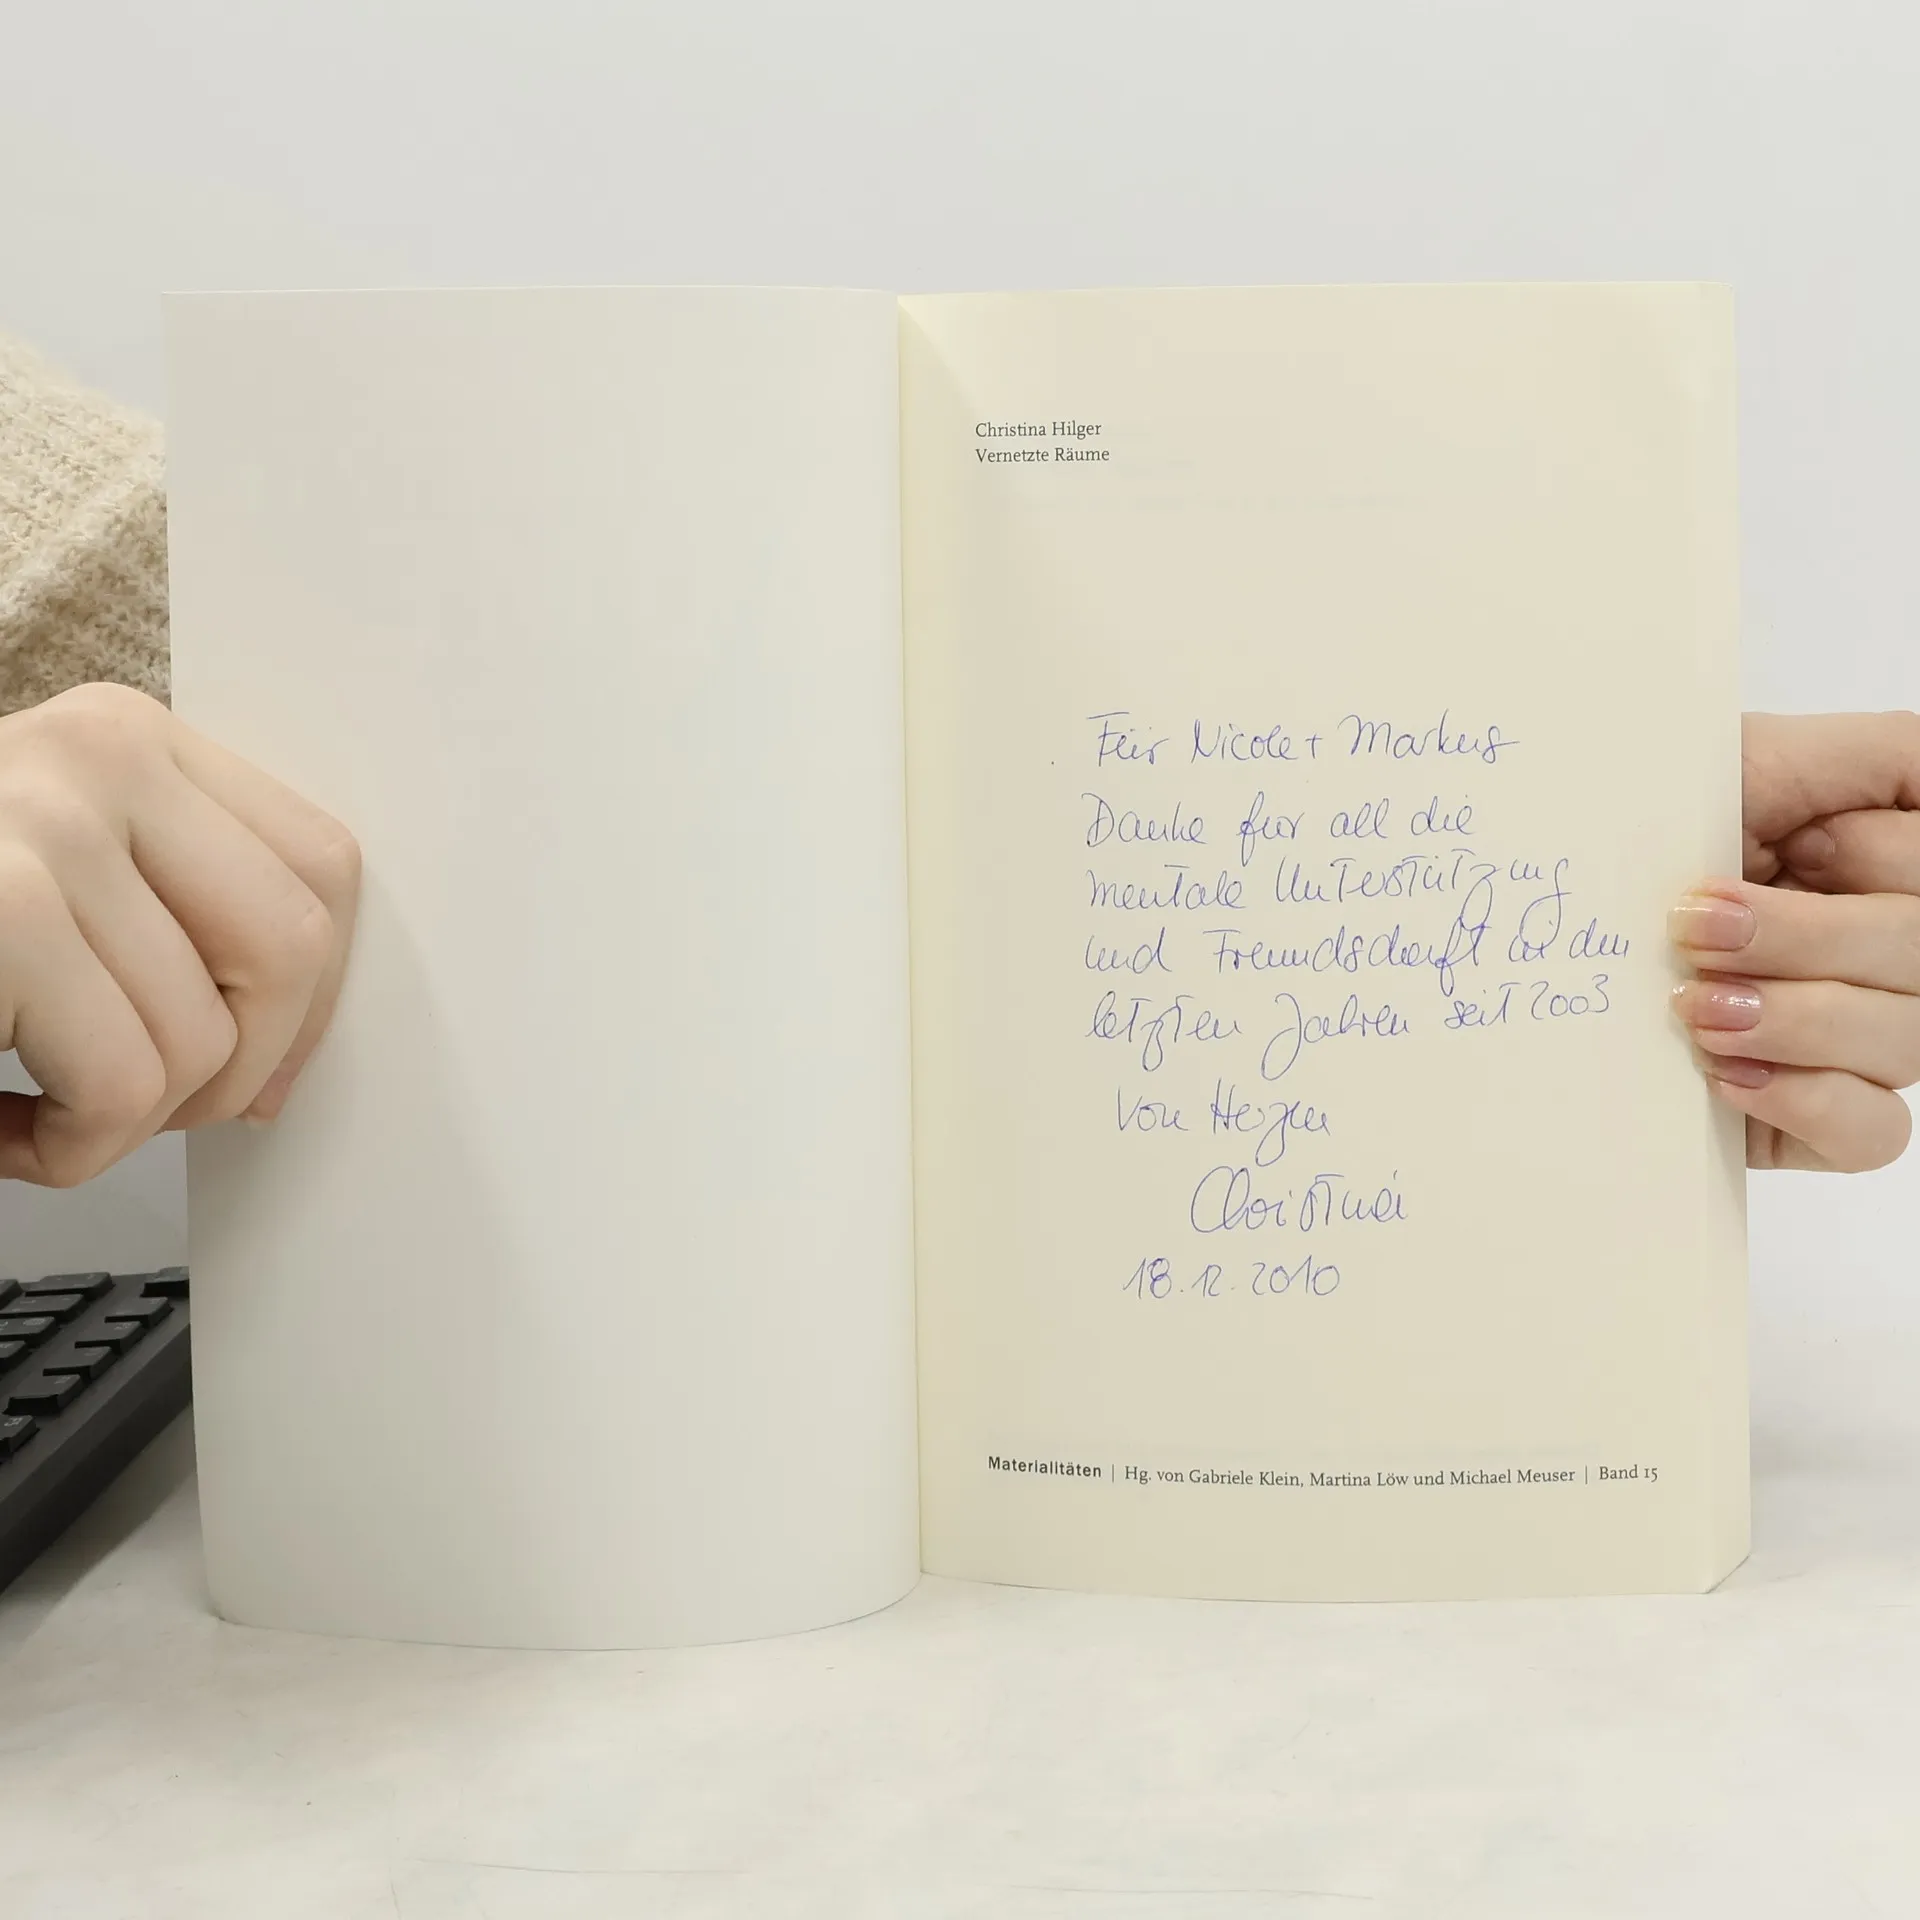 Christina Hilger
Vernetzte Räume
Für Nicole + Markus
Danke für all die
mentale Unterstützung
und Freundschaft in den
letzten Jahren seit 2003
Von Herzen
Christina
18.12.2010
Materialitäten | Hg. von Gabriele Klein, Martina Löw und Michael Meuser | Band 15